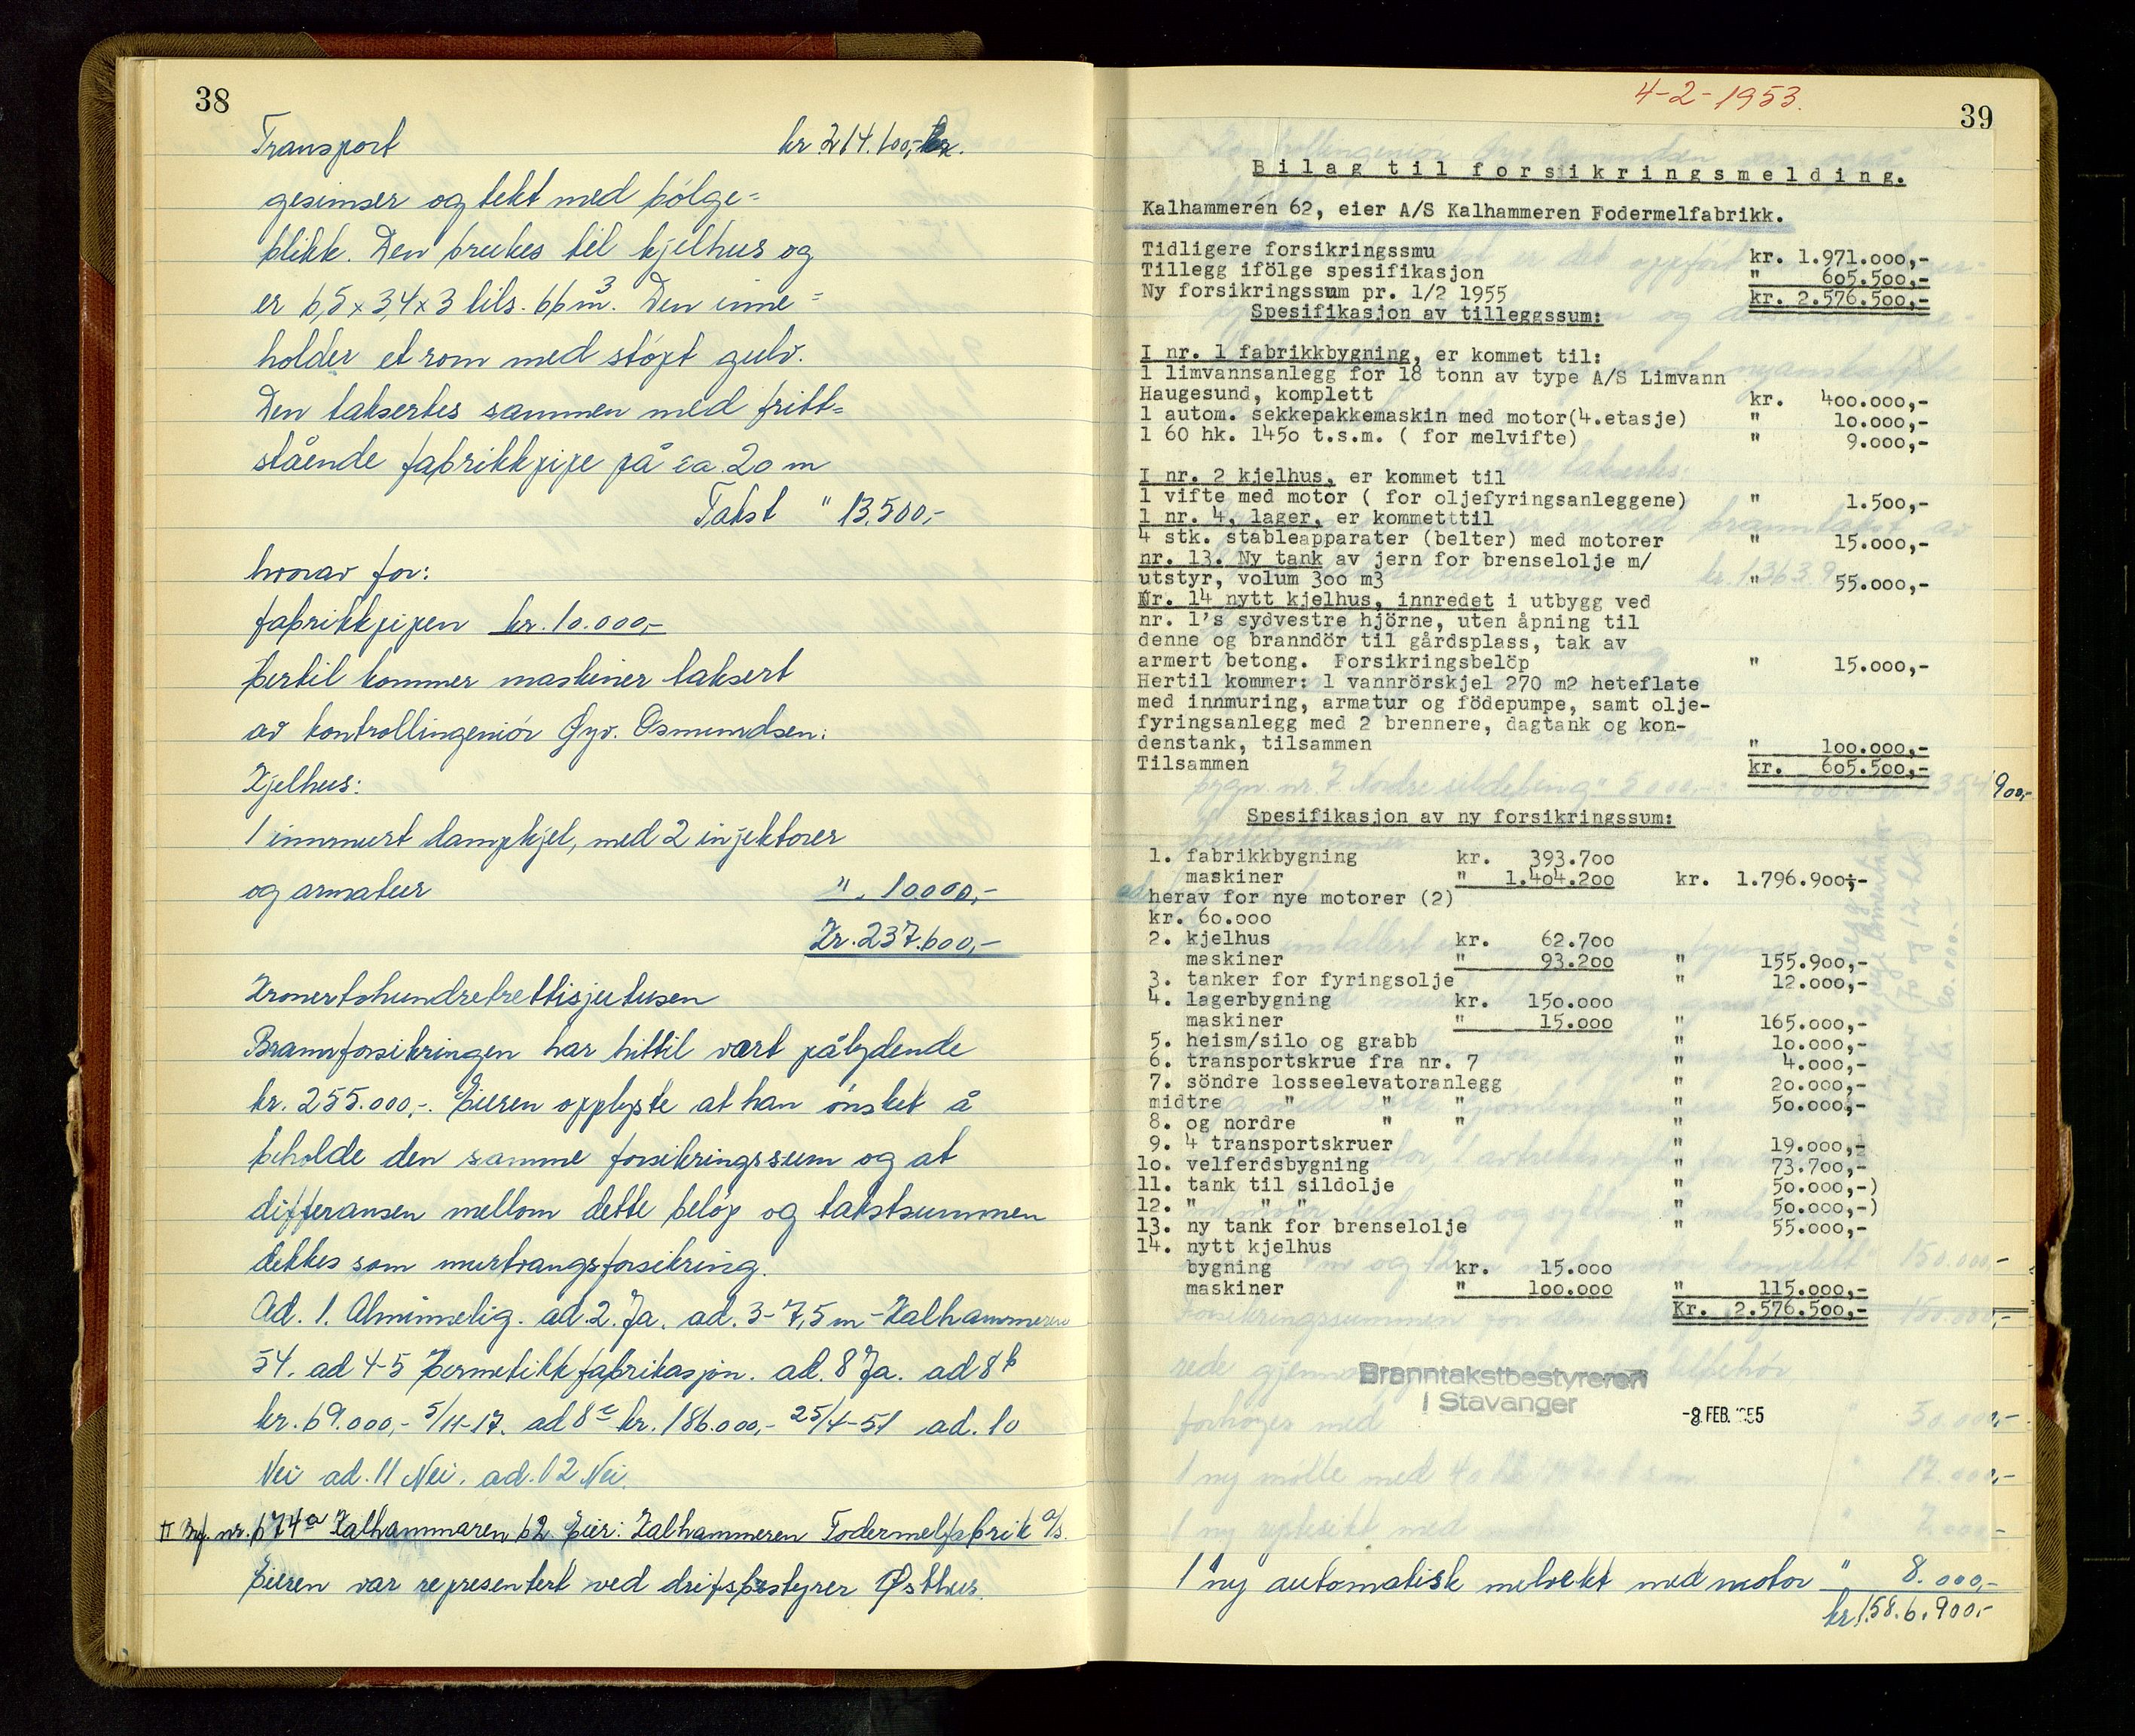 38
Transport kr 214.100,- kr.
gesimser og tekt med bólge=
blikk. Den brukes til kjelhus og
er 6,5 x 3,4 x 3 tils. 66 m3. Den inne=
holder et rom med stópt gulv.
Den taksertes sammen med fritt=
stående fabrikkpipe på ca. 20 m
Takst " 13.500,-
hvorav for:
fabrikkpipen kr. 10.000,-
Hertil kommer maskiner taksert
av kontrollingeniór Øyv. Osmundsen:
Kjelhus:
1 innmurt dampkjel, med 2 injektorer
og armatur " 10.000,-
Kr. 237.600,-
Kronertohundretrettisjutusen
Brannforsikringen har hittil vært pålydende
kr. 255.000,-. Eieren opplyste at han ónsket å
beholde den samme forsikringssum og at
differansen mellom dette belóp og takstsummen
dekkes som murtvangsforsikring.
Ad. 1. Alminnelig. ad. 2. Ja. ad. 3 - 7,5 m - Kalhammeren
54. ad 4-5 Hermetikkfabrikasjon. ad. 8 Ja. ad 8 b
kr. 69.000,- 5/11-17. ad 8 c kr. 186.000,- 25/4-51 ad. 10
Nei ad. 11 Nei. ad. 12 Nei.
nr. 674a Kalhammaren 62. Eier: Kalhammeren Fodermelfabrik a/s.
Eieren var representert ved driftsbestyrer Østhus.
4-2-1953.
39
Bilag til forsikringsmelding.
Kalhammeren 62, eier A/S Kalhammeren Fodermelfabrikk.
Tidligere forsikringssmu kr. 1.971.000,-
Tillegg ifölge spesifikasjon " 605.500,-
Ny forsikringssum pr. 1/2 1955 kr. 2.576.500,-
Spesifikasjon av tilleggssum:
I nr. 1 fabrikkbygning, er kommet til:
1 limvannsanlegg for 18 tonn av type A/S Limvann
Haugesund, komplett kr. 400.000,-
1 autom. sekkepakkemaskin med motor(4.etasje) " 10.000,-
1 60 hk. 1450 t.s.m. ( for melvifte) " 9.000,-
I nr. 2 kjelhus, er kommet til
1 vifte med motor ( for oljefyringsanleggene) " 1.500,-
1 nr. 4, lager, er kommetttil
4 stk. stableapparater (belter) med motorer " 15.000,-
nr. 13. Ny tank av jern for brenselolje m/
utstyr, volum 300 m3 " 55.000,-
Nr. 14 nytt kjelhus, innredet i utbygg ved
nr. 1's sydvestre hjörne, uten åpning til
denne og branndör til gårdsplass, tak av
armert betong. Forsikringsbelöp " 15.000,-
Hertil kommer: 1 vannrörskjel 270 m2 heteflate
med innmuring, armatur og födepumpe, samt olje-
fyringsanlegg med 2 brennere, dagtank og kon-
denstank, tilsammen " 100.000,-
Tilsammen kr. 605.500,-
900,-
Spesifikasjon av ny forsikringssum:
1. fabrikkbygning kr. 393.700
maskiner " 1.404.200 kr. 1.796.900,-
herav for nye motorer (2)
kr. 60.000
2. kjelhus kr. 62.700
maskiner " 93.200 " 155.900,-
3. tanker for fyringsolje " 12.000,-
4. lagerbygning kr. 150.000
maskiner " 15.000 " 165.000,-
5. heism/silo og grabb " 10.000,-
6. transportskrue fra nr. 7 " 4.000,-
7. söndre losseelevatoranlegg " 20.000,-
midtre " " " " 50.000,-
8. og nordre " " "
9. 4 transportskruer " 19.000,-
10. velferdsbygning " 73.700,-
11. tank til sildolje " 50.000,-)
12. " " " " 50.000,-)
13. ny tank for brenselolje " 55.000,-
14. nytt kjelhus
bygning kr. 15.000
maskiner " 100.000 " 115.000,-
Kr. 2.576.500,-
Branntakstbestyreren
i Stavanger
-8. FEB. 1955
1 ny automatisk melvekt med motor " 8.000,-
kr 1.586.900,-